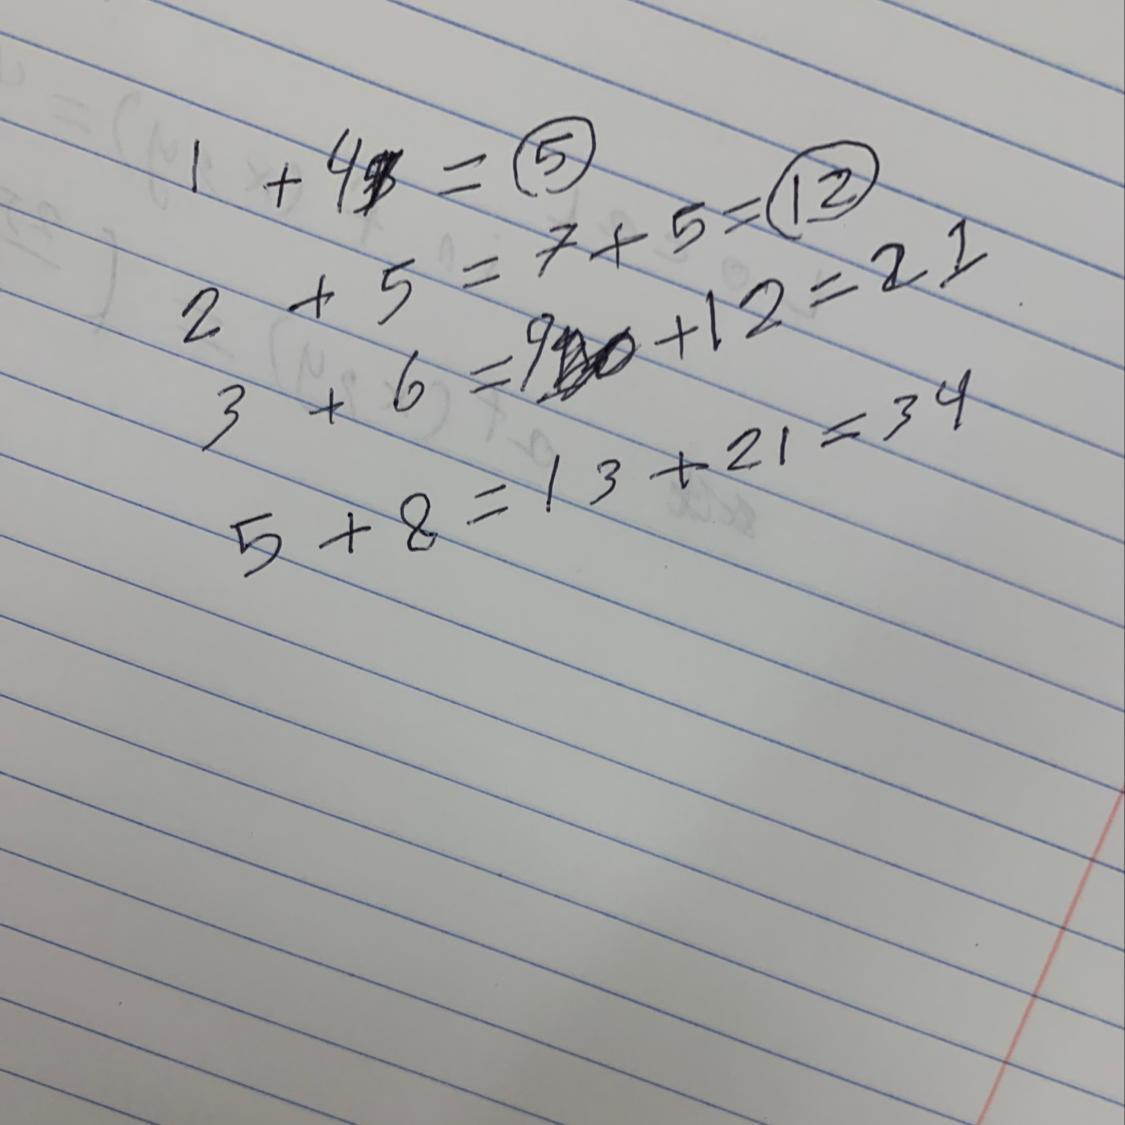 1 + 4 = 5
2 + 5 = 7 + 5 = 12
3 + 6 = 9 + 12 = 21
5 + 8 = 13 + 21 = 34